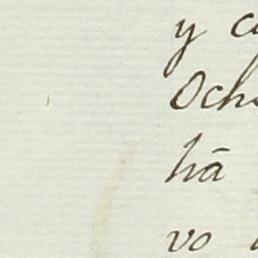 y
Och
hā
vo